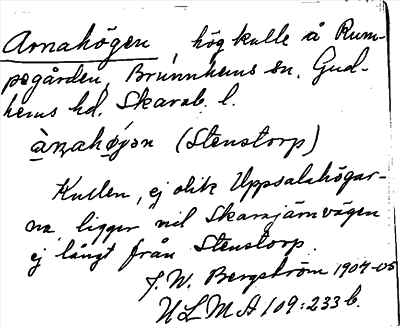 Arnahögen, hög kulle å Rum-
pegården, Brunnhems sn. Gud-
hems hd. Skarab. l.
àṇahø̀jən (Stenstorp)
Kullen, ej olik Uppsalahögar-
na, ligger vid Skarajärnvägen
ej långt från Stenstorp.
J. W. Bergström 1904-05
ULMA 109:233 b.